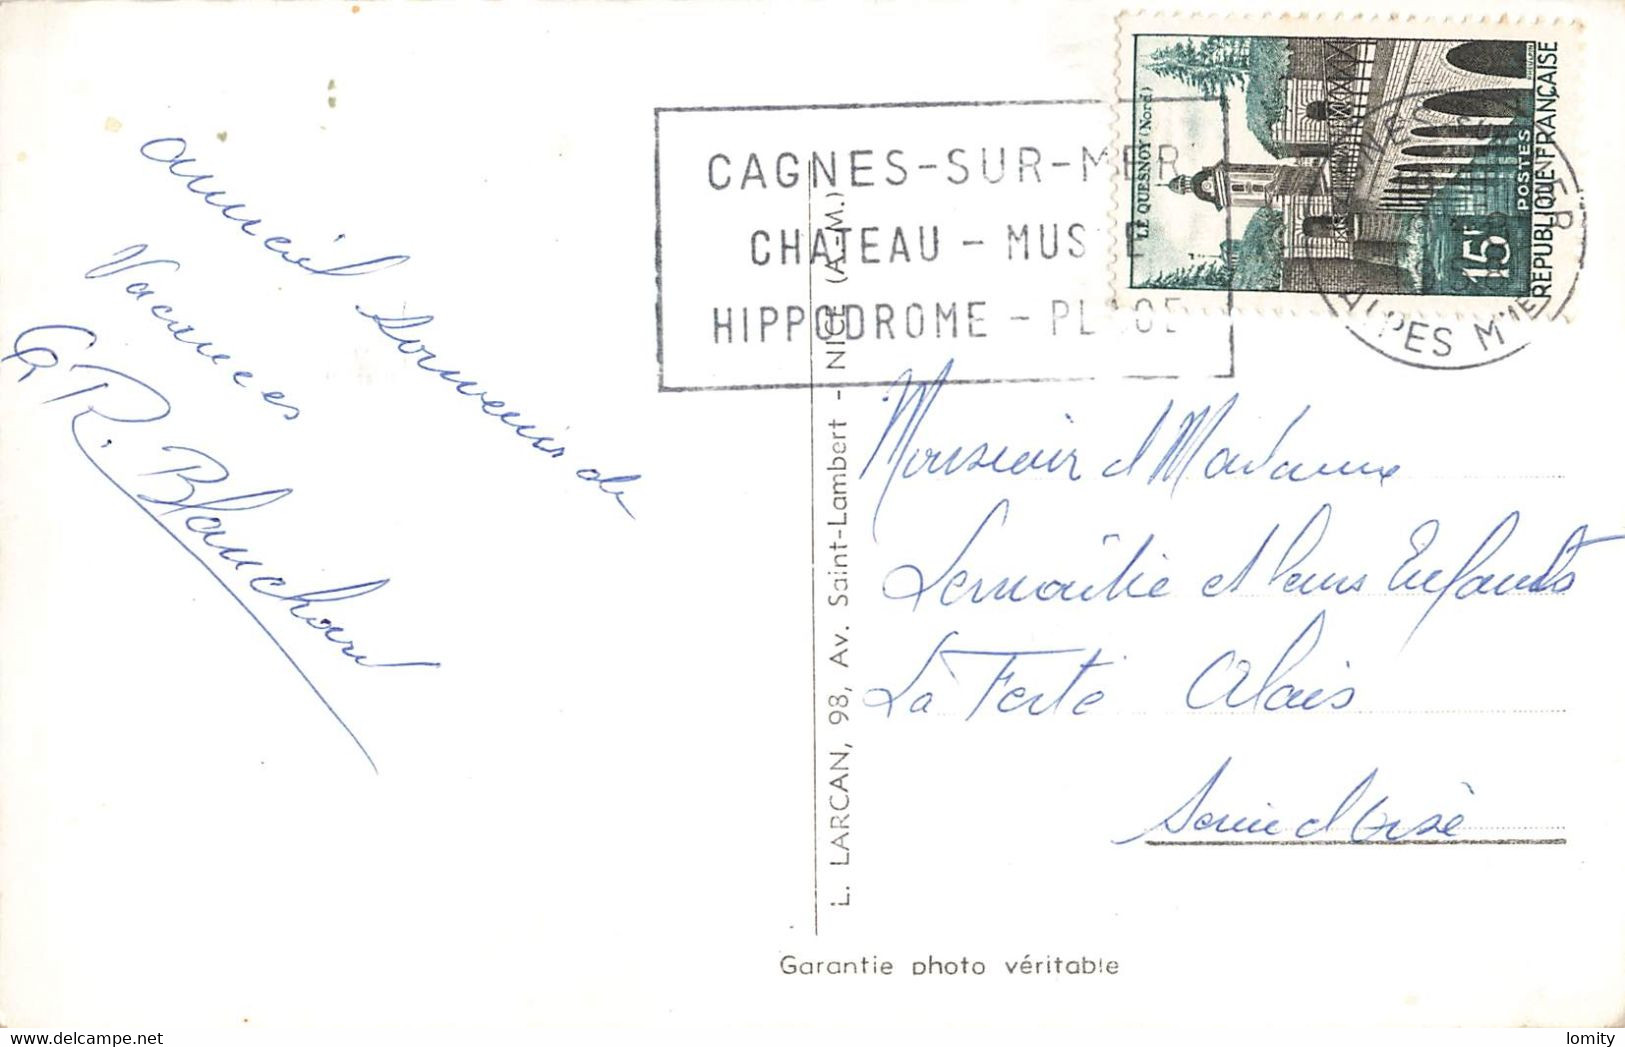 amical Souvenir de
Vacances
R. Blanchard
CAGNES-SUR-MER
CHATEAU - MUSEE
HIPPODROME - PLAGE
LE QUESNOY (Nord)
15F
POSTES
RÉPUBLIQUE FRANÇAISE
ALPES Mmes
L. LARCAN, 98, Av. Saint-Lambert - NICE (A.-M.)
Monsieur et Madame
et leurs Enfants
La Ferté Alais
Seine et Oise
Garantie photo véritable
Delcampe.net
lomity